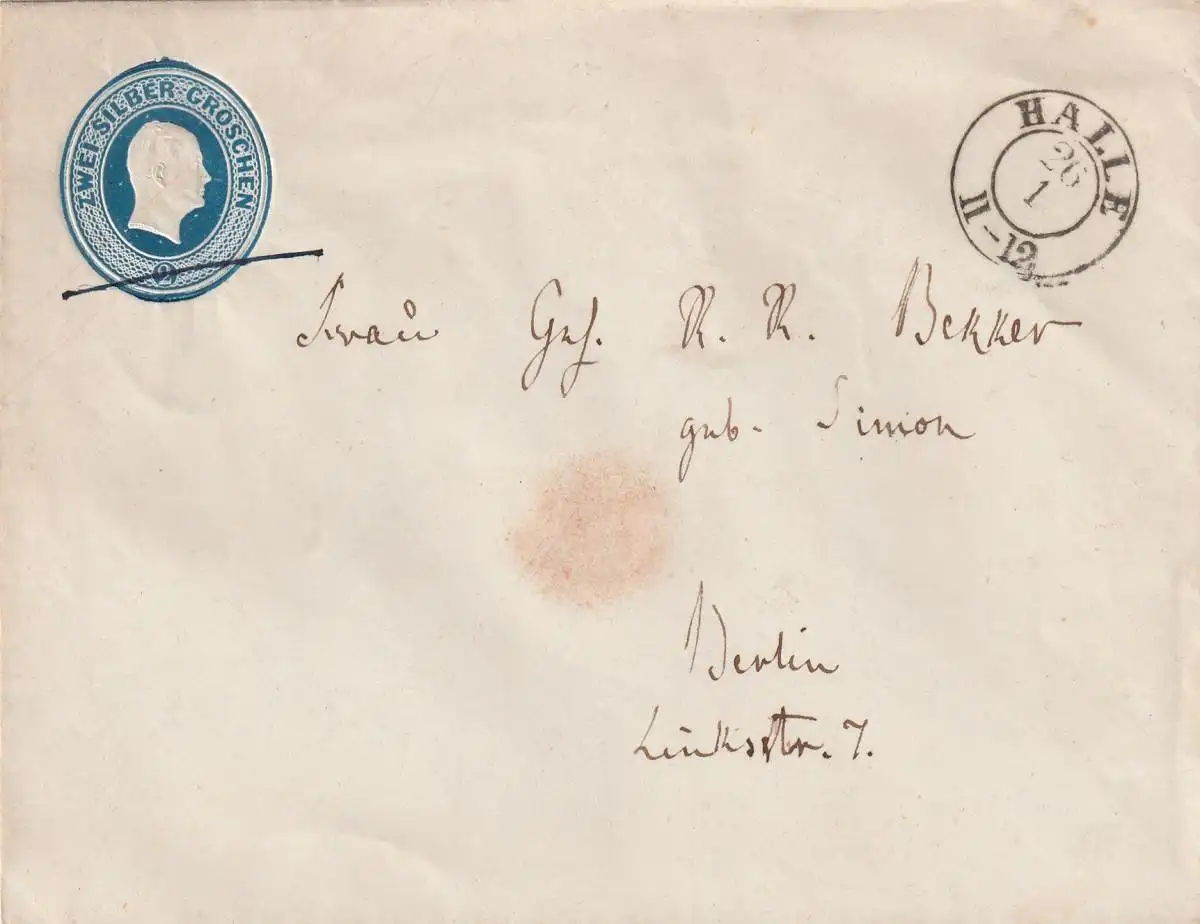 ZWEI SILBER GROSCHEN
2
HALLE
26
1
11-12
Frau Geh. R. R. Bekker
geb. Simon
Berlin
Linksstr. 7.